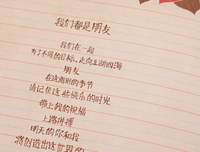 我们都是朋友
我们在一起
为了不同的目标、走向五湖四海
朋友
在这离别的季节
请记住这些快乐的时光
带上我的祝福
上路拼搏
明天的你和我
将创造出这世界的